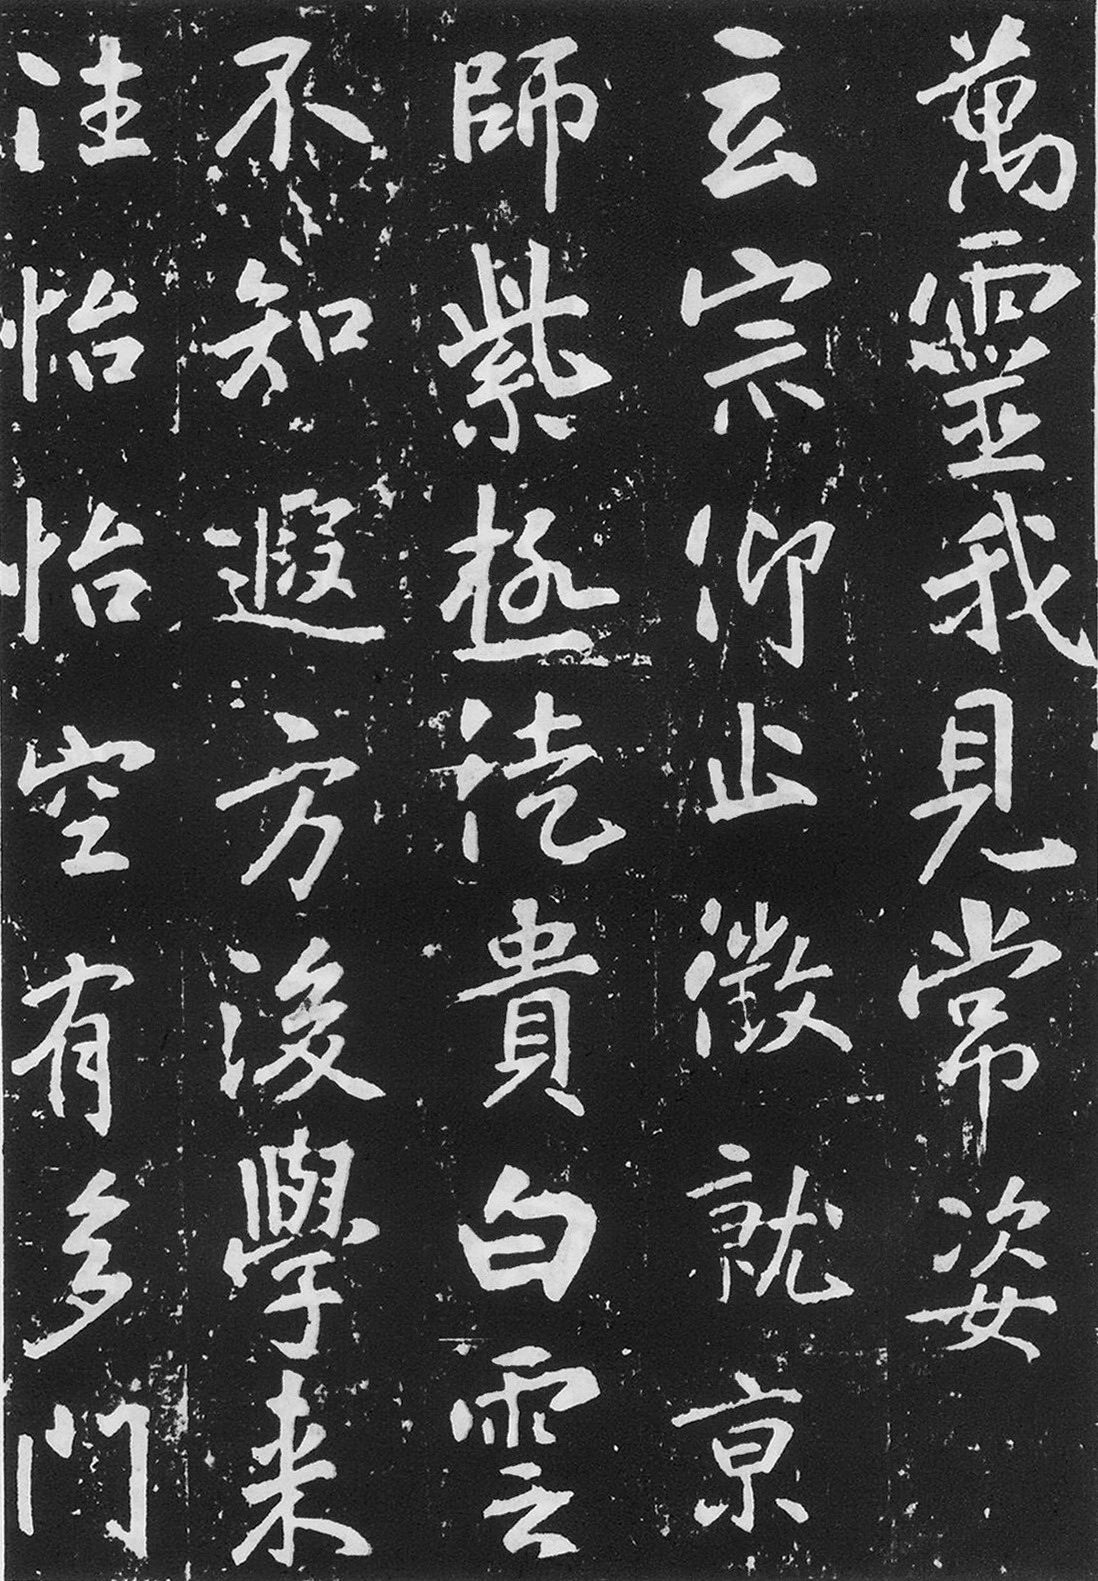 萬靈我見常姿
玄宗仰止徵就京
師紫極託貴白雲
不知遐方後學来
注怡怡空有多門